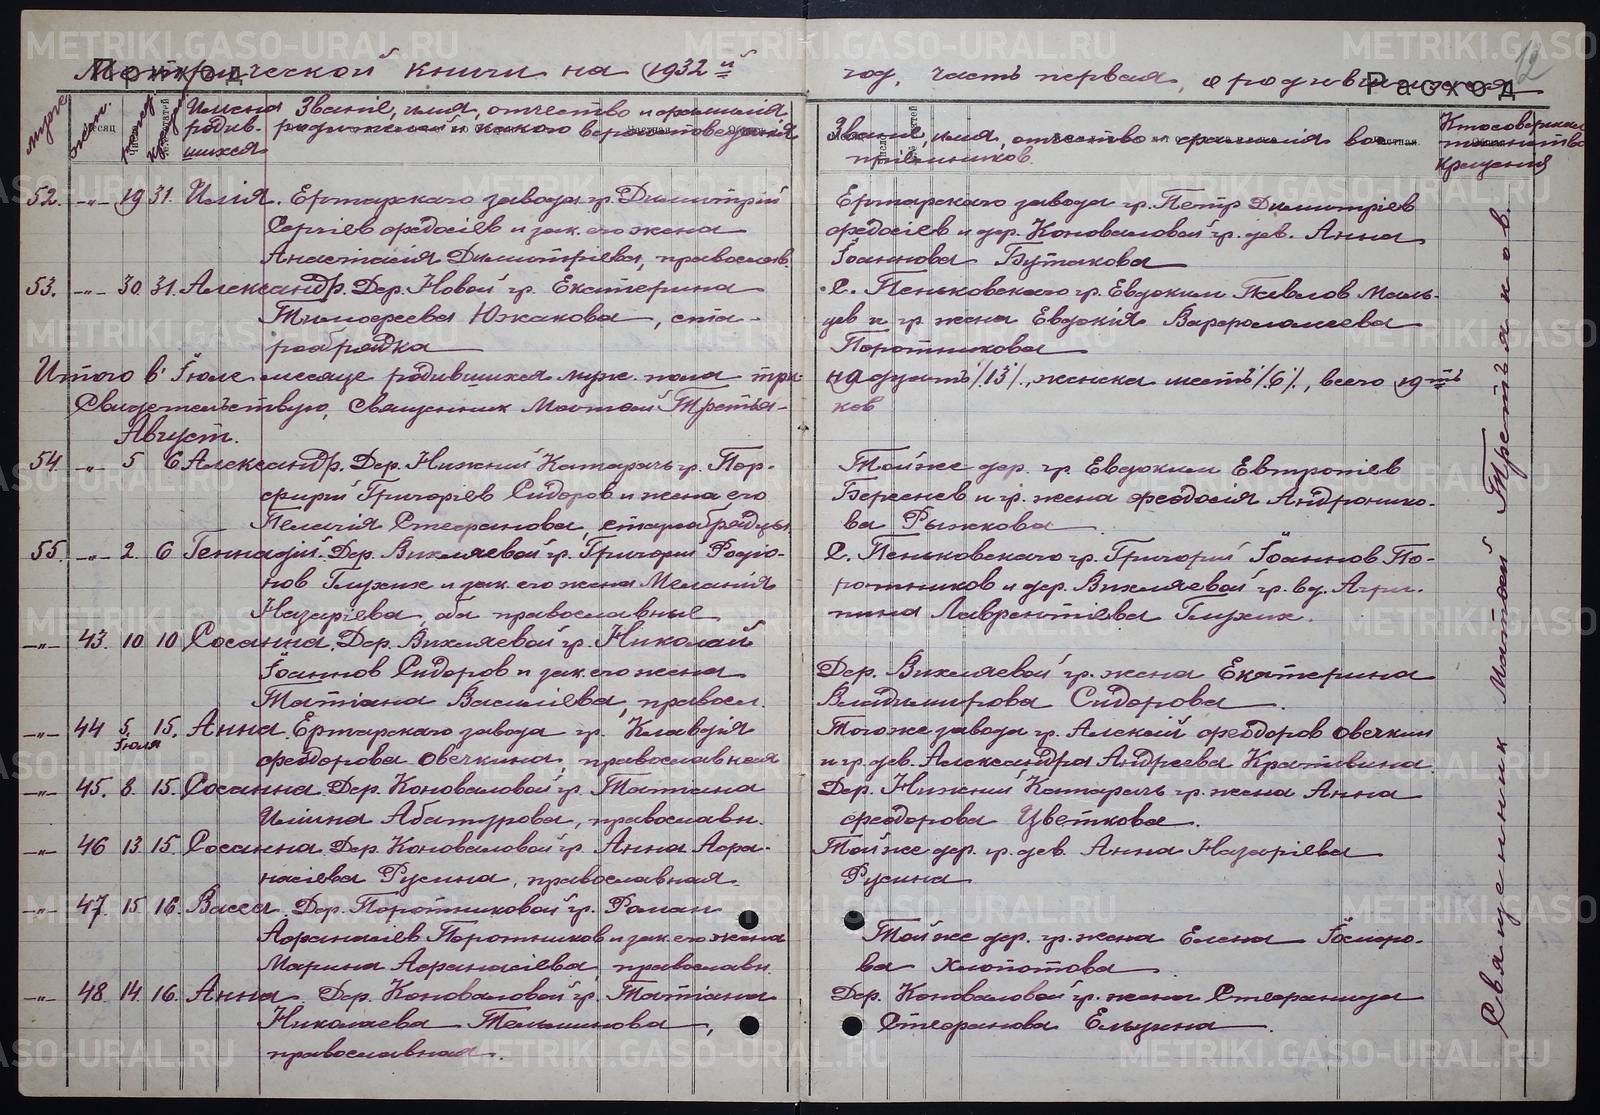 Метрической книги на 1932й год, часть первая, о родившихся
12
Приход
Расход
Имена родив-шихся
Званіе, имя, отчество и фамилія
родителей и какого вероисповеданія
Званіе, имя, отчество и фамилія вос-
пріемников.
Кто совершал
таинство
крещения
52. -"- 19 31. Илія. Ертарскаго завода гр. Димитрій
Сергіев Федосіев и зак. его жена
Анастасія Димитріева, православ.
Ертарскаго завода гр. Петр Димитріев
Федосіев и дер. Коноваловой гр. дев. Анна
Іоаннова Бутакова
53. -"- 30 31. Александр. Дер. Новой гр. Екатерина
Тимофеева Южакова, ста-
рообрядка
С. Пеньковскаго гр. Евдоким Маль-
цев и гр. жена Евдокія Варфоломеева
Поротникова
Итого в Іюле месяце родившихся муж. пола три-
надцать /13/, женска шесть /6/, всего 19-ть
Свидетельствую, Священник Матфей Третья-
ков
Август.
54 -"- 5 6 Александр. Дер. Нижний Катарач гр. Пор-
фирій Григоріев Сидоров и жена его
Пелагія Стефанова, старообрядцы
Той же дер. гр. Евдоким Евтропіев
Береснев и гр. жена Феодосія Андронико-
ва Рыжкова
55. -"- 2 6 Геннадій. Дер. Вихляевой гр. Григорий Родіо-
нов Глухих и зак. его жена Меланія
Назаріева, оба православные
С. Пеньковскаго гр. Григорий Іоаннов По-
ротников и дер. Вихляевой гр. вд. Агрип-
пина Лаврентіева Глухих.
-"- 43. 10 10 Сосанна. Дер. Вихляевой гр. Николай
Іоаннов Сидоров и зак. его жена
Татіана Василіева, правосл.
Дер. Вихляевой гр. жена Екатерина
Владимирова Сидорова.
-"- 44 5. Іюля 15. Анна. Ертарскаго завода гр. Клавдія
Феодорова Овечкина, православная
Того же завода гр. Алексій Феодоров Овечкин
и гр. дев. Александра Андреева Кративина.
-"- 45. 8. 15. Сосанна. Дер. Коноваловой гр. Татиана
Илиина Абатурова, православн.
Дер. Нижний Катарач гр. жена Анна
Феодорова Цветкова.
-"- 46 13 15. Сосанна. Дер. Коноваловой гр. Анна Афа-
насіева Русина, православная.
Той же дер. гр. дев. Анна Назаріева
Русина
-"- 47. 15 16. Васса. Дер. Поротниковой гр. Роман
Афанасіев Поротников и зак. его жена
Марина Афанасіева, православн.
Той же дер. гр. жена Елена
Хлопотова
-"- 48. 14. 16. Анна. Дер. Коноваловой гр. Татіана
Николаева Тельминова,
православная.
Дер. Коноваловой гр. жена Стефанида
Стефанова Ельцина.
Священник Матфей Третьяков.